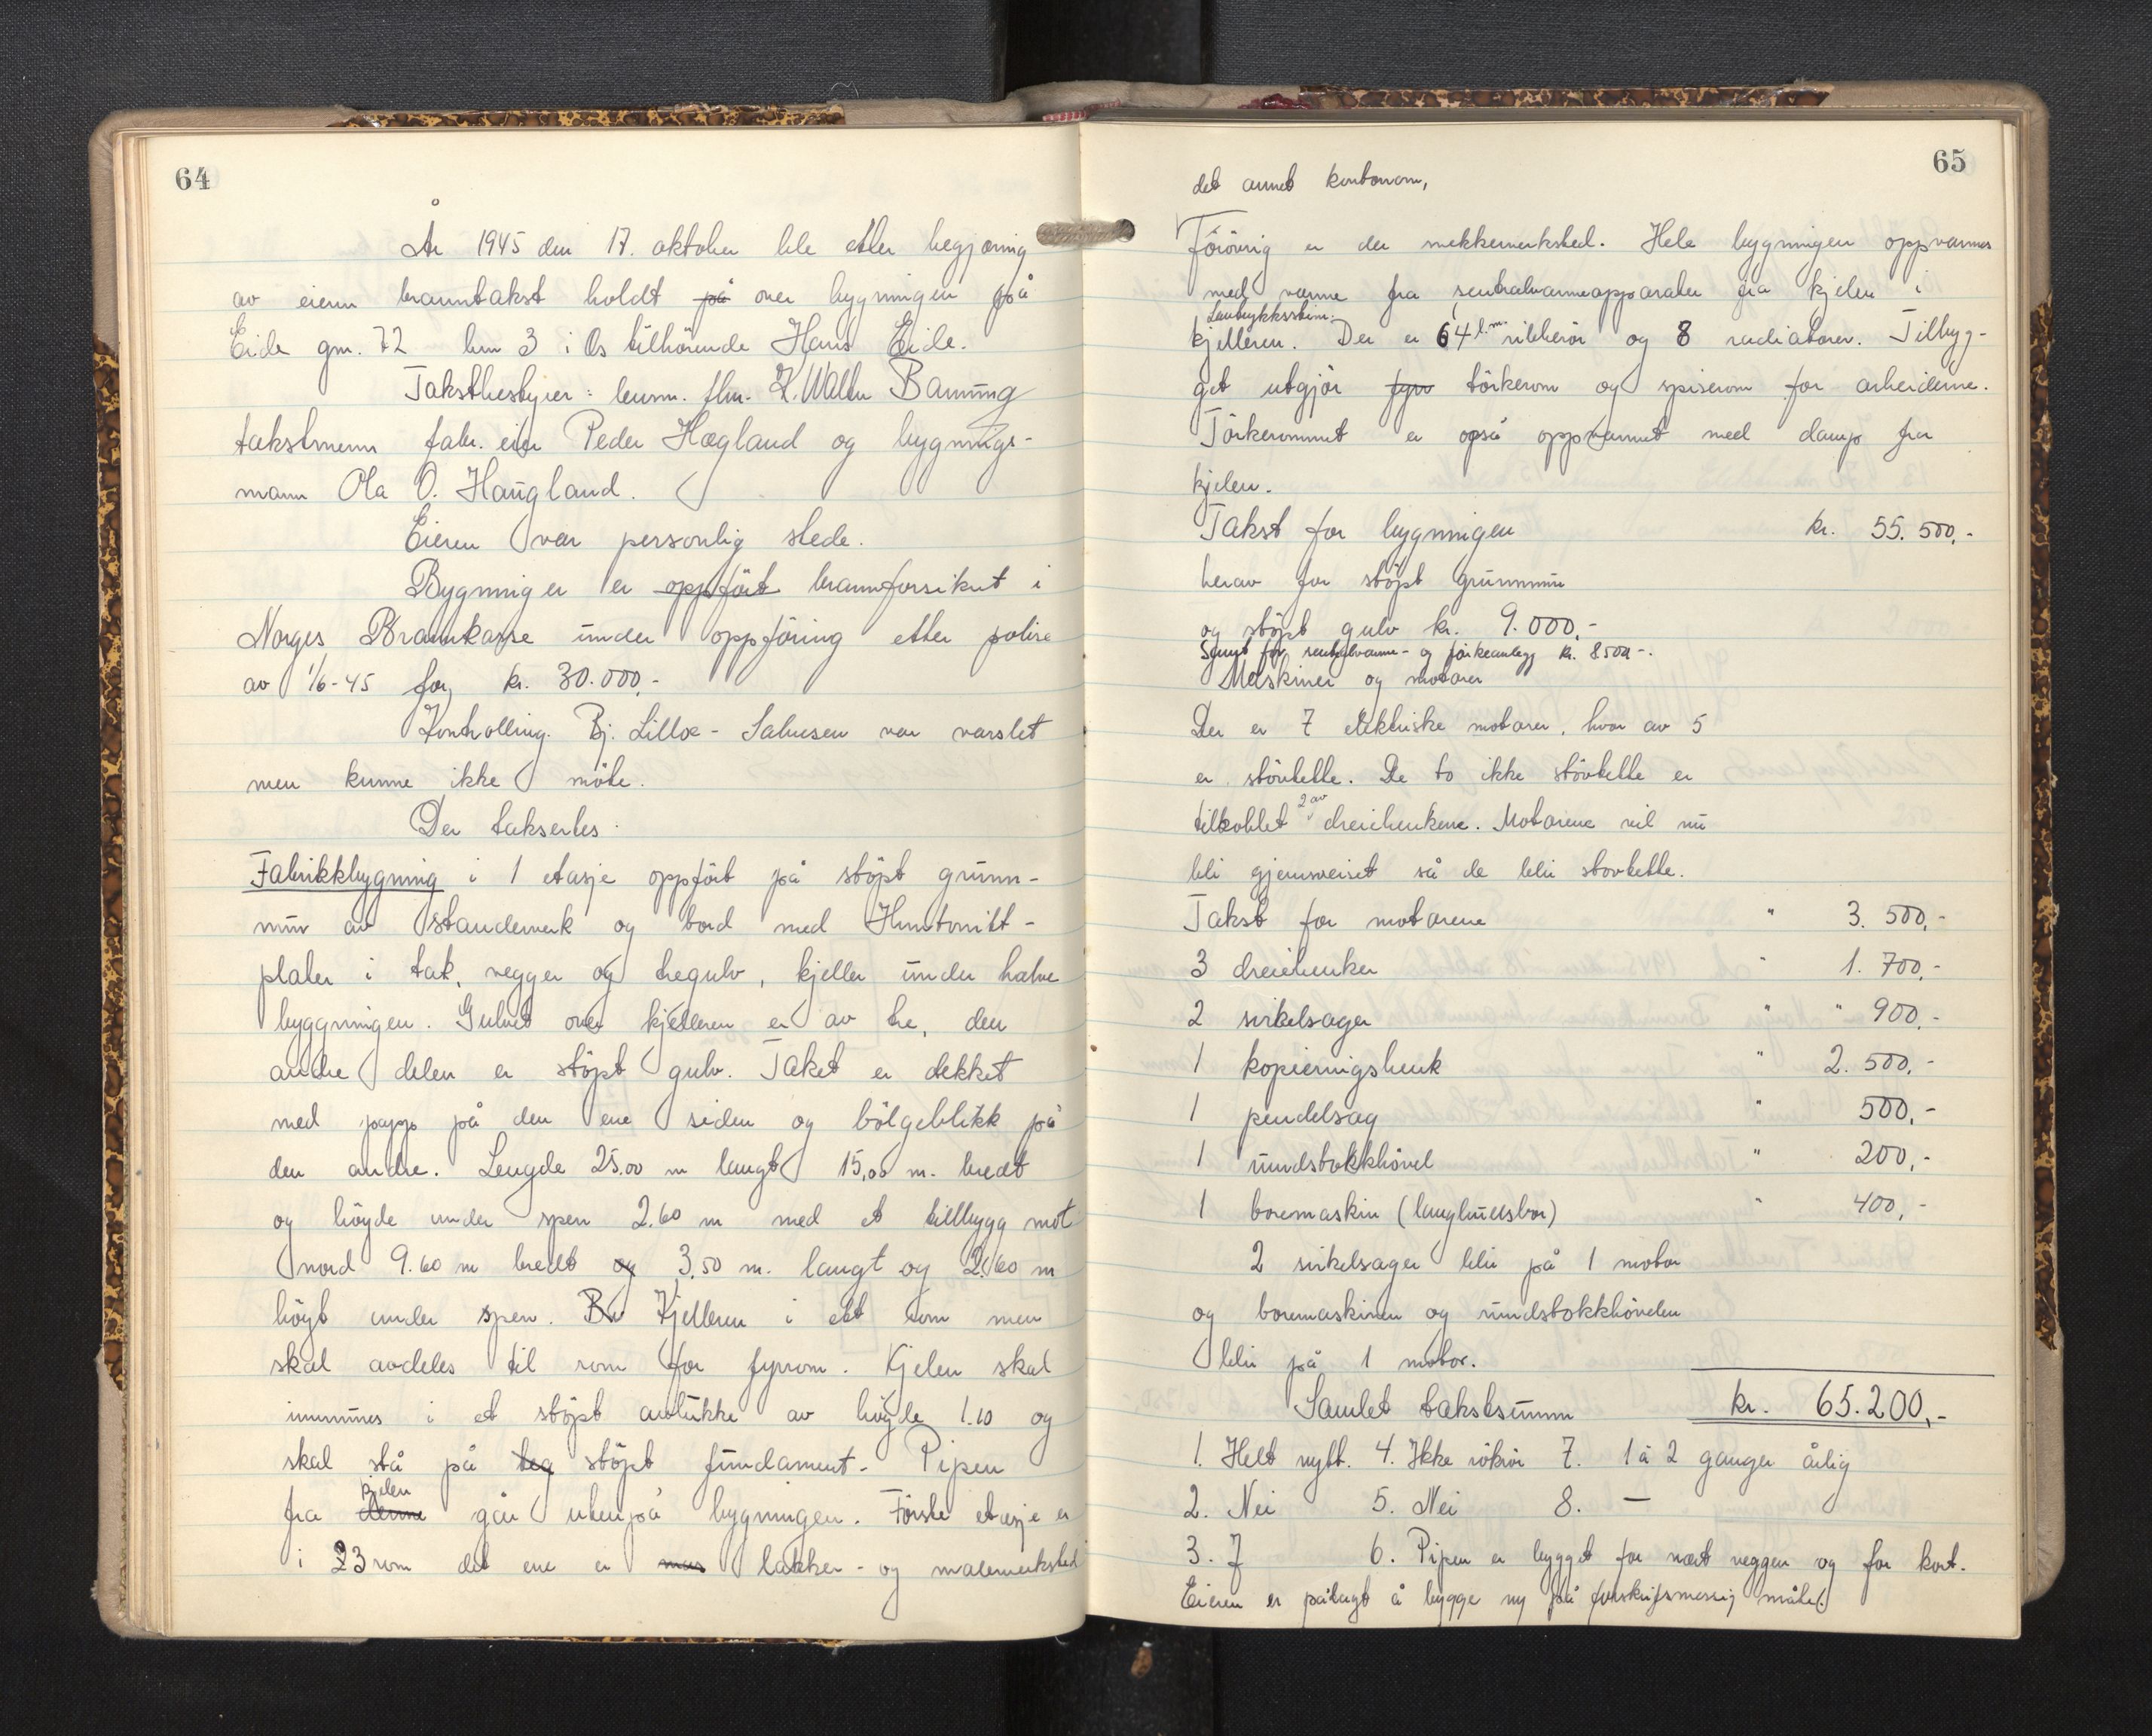 64
År 1945 den 17. oktober ble etter begjæring
av eieren branntakst holdt på over bygningen på
Eide gnr. 72 bnr 3 i Os tilhörende Hans Eide.
Takstbestyrer: lensm. flm. K. Walter Banning
takstmenn fabr. eier Peder Hægland og bygnings-
mann Ola O. Haugland.
Eieren var personlig stede.
Bygningen er oppfört brannforsikret i
Norges Brannkasse under oppföring etter polise
av 1/6-45 for kr. 30.000,-
Kontrolling. Bj. Lilloe-Salvesen var varslet
men kunne ikke möte.
Der taksertes:
Fabrikkbygning i 1 etasje oppfört på stöpt grunn-
mur av standerverk og bord med Huntonitt-
plater i tak, vegger og tregulv, kjeller under halve
byggningen. Gulvet over kjelleren er av tre, den
andre delen er stöpt gulv. Taket er dekket
med papp på den ene siden og bölgeblikk på
den andre. Lengde 25.00 m langt 15,00 m. bredt
og höyde under sperr 2.60 m med et tillbygg mot
nord 9.60 m bredt og 3,50 m. langt og 2.60 m
höyt under sperr. Kjelleren i ett rom men
skal avdeles til rom for fyrrom. Kjelen skal
innmures i et stöpt avlukke av höyde 1.10 og
skal stå på teg stöpt fundament. Pipen
kjelen
fra denne går utenpå bygningen. Förste etasje er
i 3 rom det ene er lakker- og malerverksted
65
det annet kontorrom,
Forövrig er der snekkerverksted. Hele bygningen oppvarmes
med varme fra sentralvarmeapparater fra kjelen i
Lavtrykksstim.
kjelleren. Der er 64 l.m. ribberör og 8 radiatorer. Tilbyg-
get utgjör fyr törkerom og spiserom for arbeiderne.
Törkerommet er også oppvarmet med damp fra
kjelen.
Takst for bygningen kr. 55.500,-
herav for stöpt grunnmur
og stöpt gulv kr. 9.000,-
Samt for sentralvarme- og törkeanlegg kr. 8500-.
Maskiner og motorer
Der er 7 elektriske motorer, hvor av 5
er stövtette. De to ikke stövtette er
2 av
tilkoblet dreiebenkene. Motorene vil nu
bli gjennomreist så de blir stovtette.
Takst for motorene " 3.500,-
3 dreiebenker " 1.700,-
2 sirkelsager " " 900,-
1 kopieringsbenk " 2.500,-
1 pendelsag " 500,-
1 rundstokkhövel " 200,-
1 boremaskin (langhullsbor) " 400,-
2 sirkelsager blir på 1 motor
og boremaskinen og rundstokkhövelen
blir på 1 motor.
Samlet takstsumm kr. 65.200,-
1. Helt nytt. 4. Ikke rökrör 7. 1 à 2 ganger årlig
2. Nei 5. Nei 8. —
3. 7 6. Pipen er bygget for nært veggen og for kort.
Eieren er pålagt å bygge ny på forskrifsmessig måte.